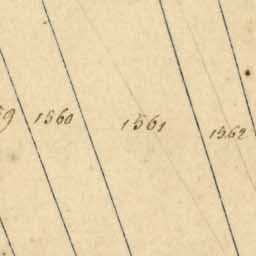 1560
1561
1562